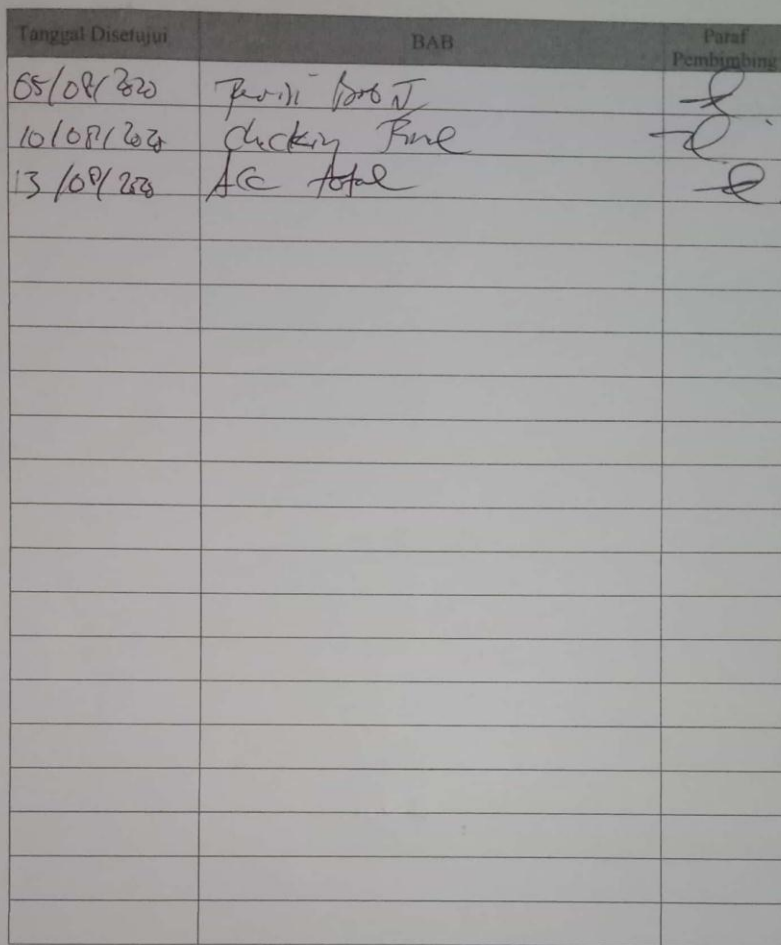 Tanggal Disetujui BAB Paraf Pembimbing
05/08/2020 Revisi Bab
10/08/2020 Checking Final
13/08/2020 Acc total